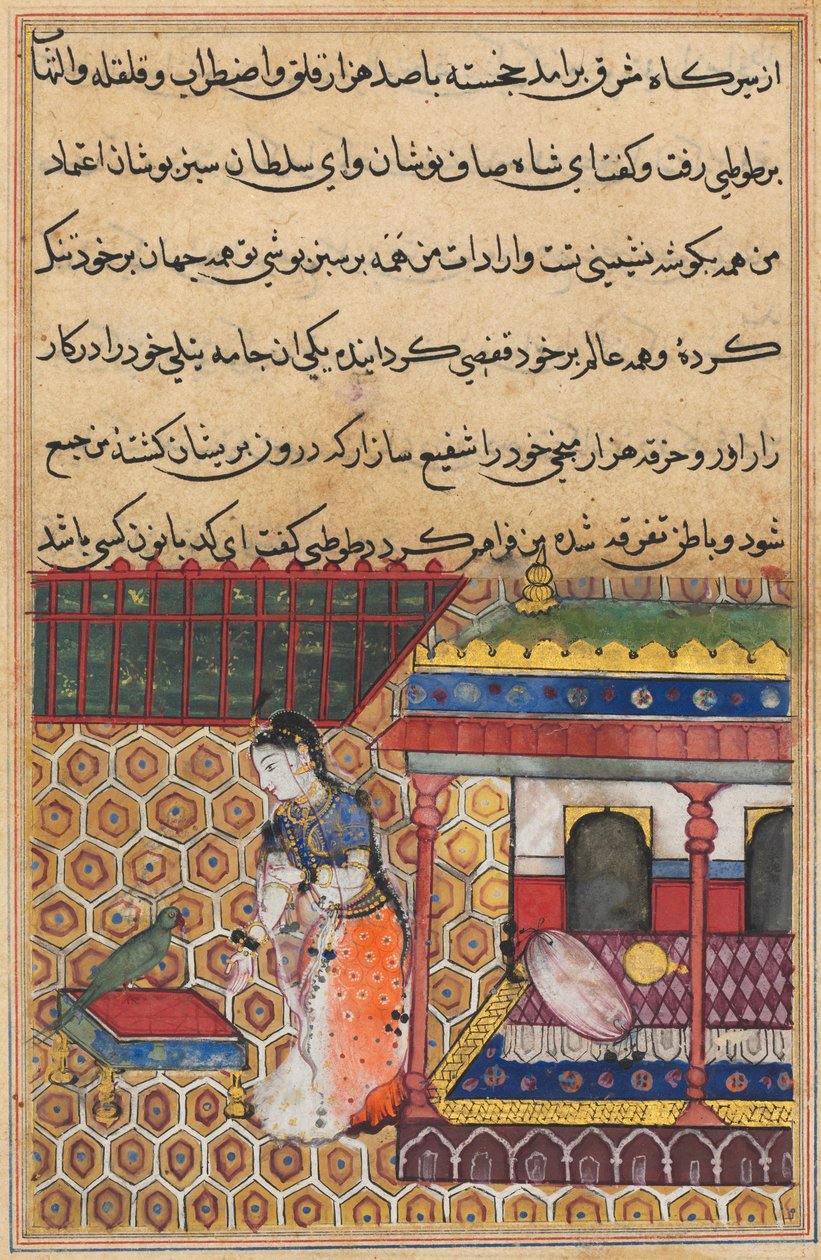 از سیر کاه مشرق برامد خجسته با صد هزار قلق و اضطراب و قلقله و التهاب
بر طوطی رفت و کفت ای شاه صاف نوشان و ای سلطان سبز پوشان اعتماد
من همه بکوشه نشینی تست و ارادات من همه بر سبز پوشی تو همه جهان بر خود تنک
کردهٔ و همه عالم بر خود قفصی کردانیده یکی ان جامه نیلی خود را در کار
زار اور و خرقه هزار میخی خود را شفیع ساز ار که درون پریشان کشتهٔ من جمع
شود و باطن تفرقه شده من فراهم کردد طوطی کفت ای کدبانو ن کسی باشد